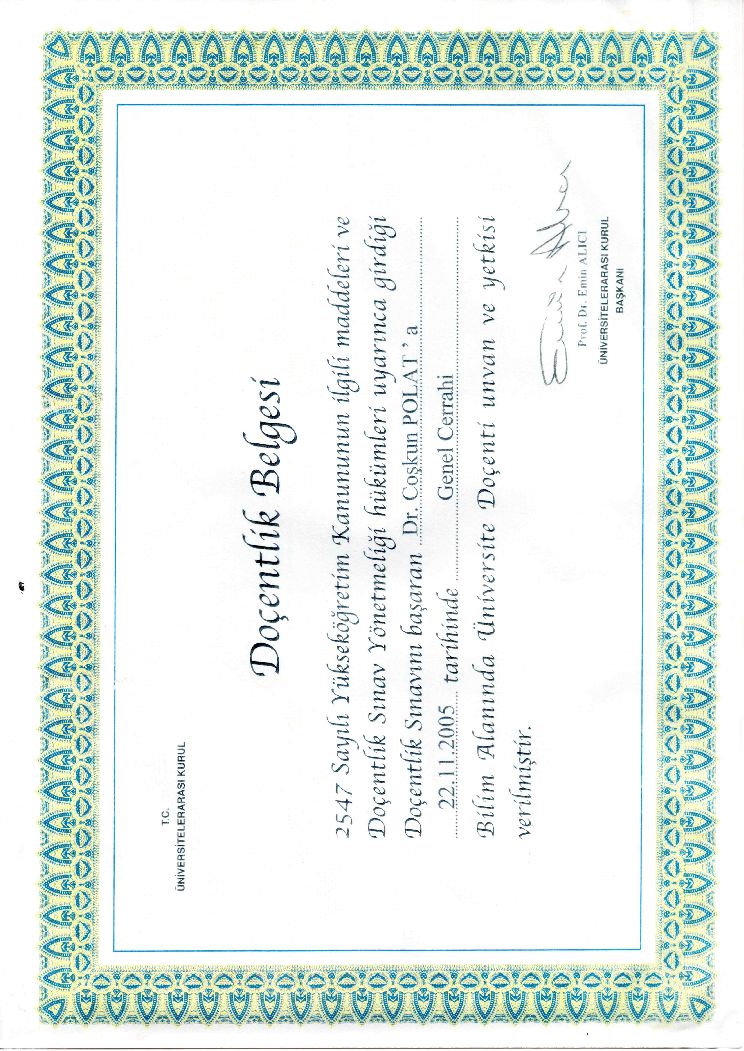 T.C.
ÜNİVERSİTELERARASI KURUL
Doçentlik Belgesi
2547 Sayılı Yükseköğretim Kanununun ilgili maddeleri ve
Doçentlik Sınav Yönetmeliği hükümleri uyarınca girdiği
Doçentlik Sınavını başaran Dr. Coşkun POLAT ' a
22.11.2005 tarihinde Genel Cerrahi
Bilim Alanında Üniversite Doçenti unvan ve yetkisi
verilmiştir.
Prof. Dr. Emin ALICI
ÜNİVERSİTELERARASI KURUL
BAŞKANI